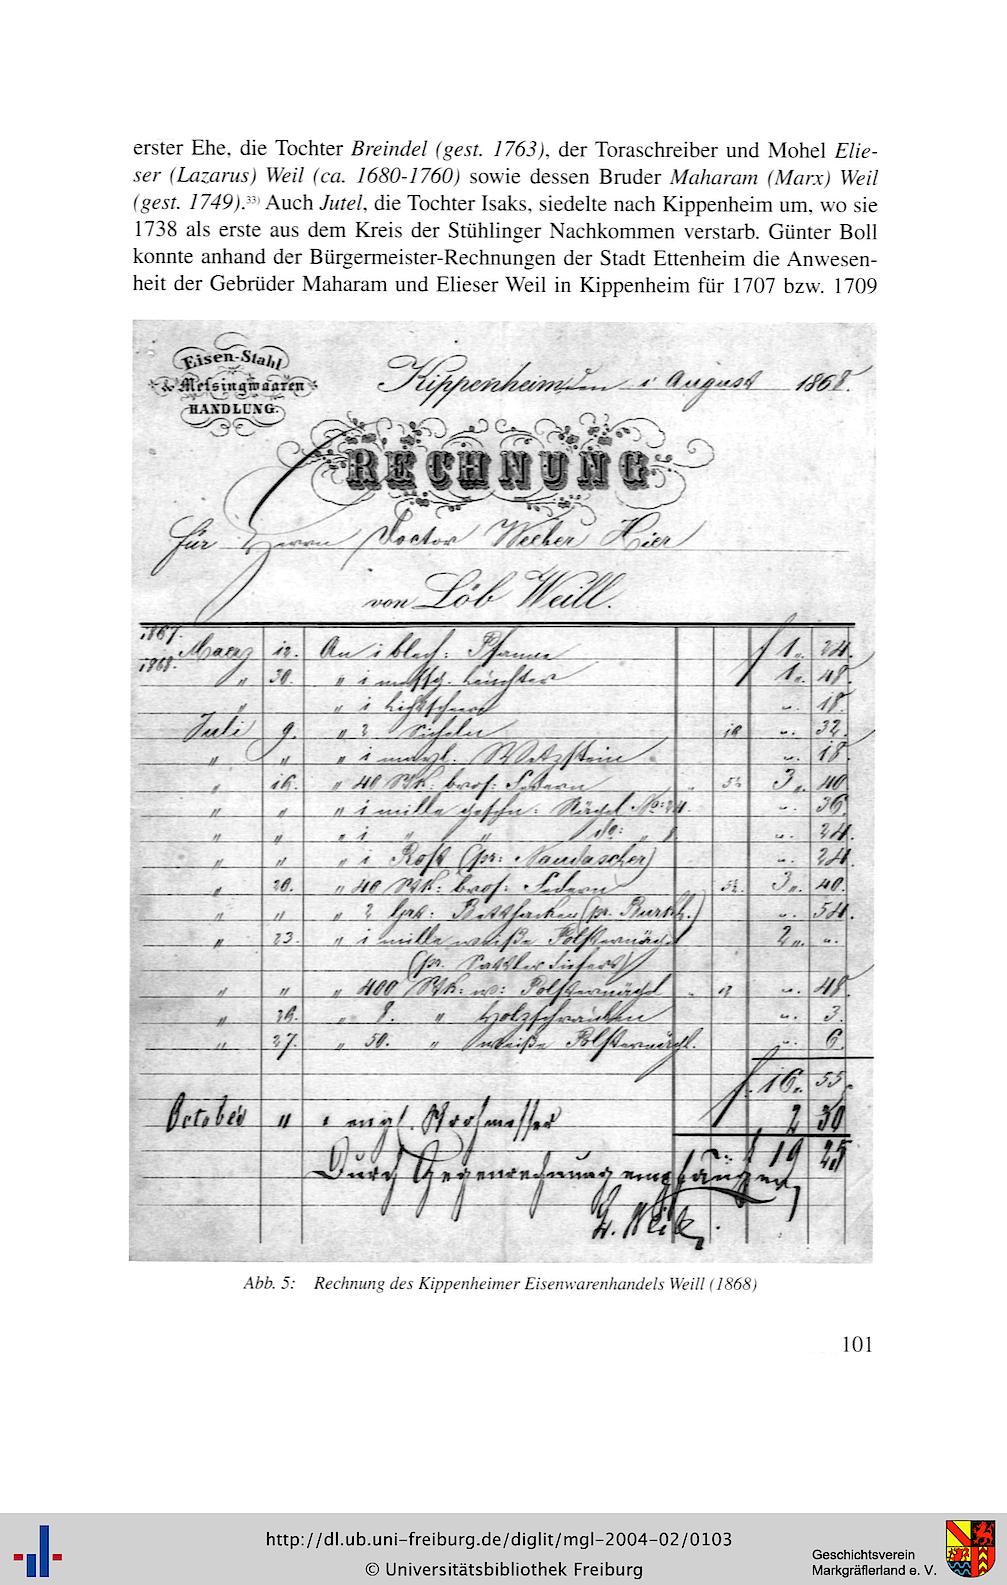 erster Ehe, die Tochter Breindel (gest. 1763), der Toraschreiber und Mohel Elie-
ser (Lazarus) Weil (ca. 1680-1760) sowie dessen Bruder Maharam (Marx) Weil
(gest. 1749).33) Auch Jutel, die Tochter Isaks, siedelte nach Kippenheim um, wo sie
1738 als erste aus dem Kreis der Stühlinger Nachkommen verstarb. Günter Boll
konnte anhand der Bürgermeister-Rechnungen der Stadt Ettenheim die Anwesen-
heit der Gebrüder Maharam und Elieser Weil in Kippenheim für 1707 bzw. 1709
Eisen-Stahl
& Messingwaaren
HANDLUNG.
Kippenheim, den 1 August 1868.
RECHNUNG
für Herrn Doctor Weeber Hier
von Löb Weill.
1867. Maerz 12. An 1 blech: Pfanne f 1 „ 24.
1868. „ 30. „ 1 messg. Leuchter 1 „ 48.
„ „ 1 Lichtscheere „. 18.
Juli 9. „ 2 Sicheln 16 „. 32.
„ „ „ 1 Wetzstein „. 18.
„ 16. „ 40 Stk: Federn 5½ 3 „. 40.
„ „ „ 1 mille Nägel No: 24. „. 36.
„ „ „ 1 „ „ do: „ 8. „. 24.
„ „ „ 1 Rost „. 24.
„ 20. „ 40 Stk: Federn 5½. 3 „. 40.
„ „ „ 2 „. 54.
„ 23. „ 1 mille weiße Polsternägel 2 „. „.
(pr. Sattler
„ „ „ 400 Stk: w: Polsternägel „ 12 „. 48.
„ 26. „ 8. „ Holzschrauben „. 3.
„ 27. „ 50. „ weiße Polsternägl. „. 6.
f. 16 „. 55.
October „ 1 engl. Strohmesser 2 30
f 19 25
Durch Gegenrechnung empfangen
L. Weil
Abb. 5: Rechnung des Kippenheimer Eisenwarenhandels Weill (1868)
101
http://dl.ub.uni-freiburg.de/diglit/mgl-2004-02/0103
© Universitätsbibliothek Freiburg
Geschichtsverein
Markgräflerland e. V.